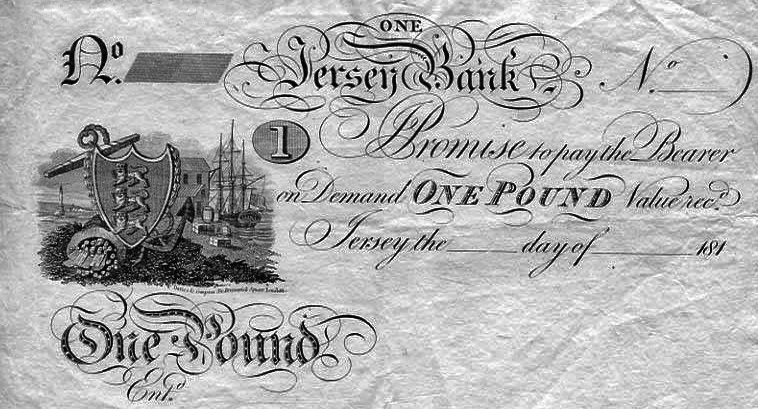 ONE
No. Jersey Bank No.
1 I Promise to pay the Bearer
on Demand ONE POUND Value recd.
Jersey the day of 181
One Pound
Entd.